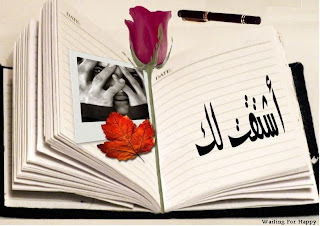 DATE
DATE
أشتقت لك
Waiting For Happy